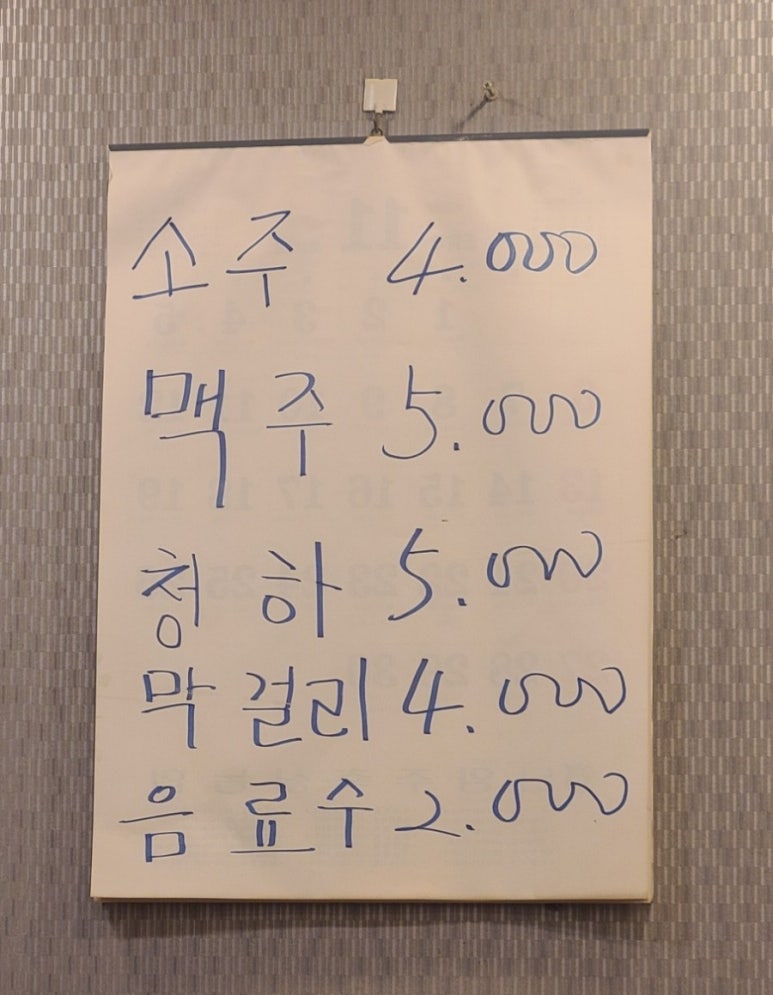 소주 4.000
맥주 5.000
청하 5.000
막걸리 4.000
음료수 2.000